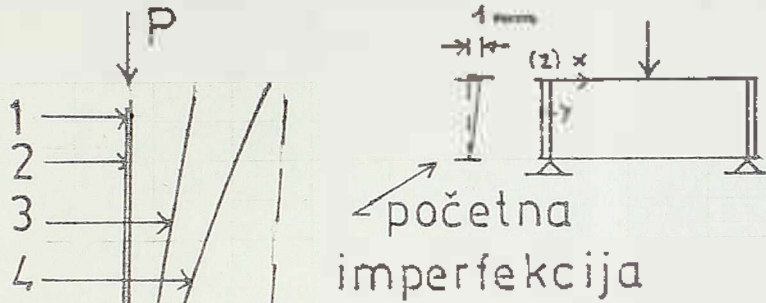 P
1
2
3
4
1 mm
(z) x
y
početna
imperfekcija